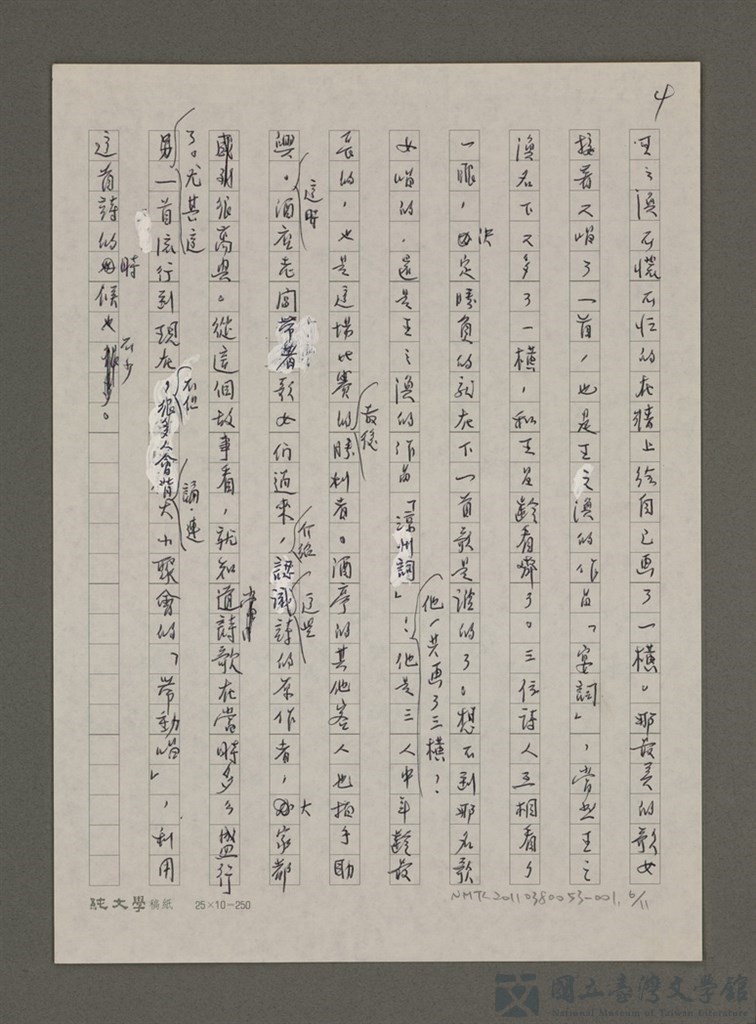 4
王之渙不慌不忙的在牆上給自己畫了一橫。那最美的歌女
接著又唱了一首，也是王之渙的作品「宴詞」，當然王之
渙名下又多了一橫，和王昌齡看齊了。三位詩人互相看了
一眼，決定勝負的詞在下一首歌是誰的了。想不到那名歌
女唱的，還是王之渙的作品「涼州詞」！他是三人中年齡最
他一共畫了三橫！
長的，也是這場比賽的勝利者。酒亭的其他客人也拍手助
最後
興。酒座老闆帶著歌女們過來，認識詩的原作者，大家都
這時
介紹
這是
感到很高興。從這個故事看，就知道詩歌在當時多麼盛行
了。尤其這
另一首流行到現在，很多人會背大小聚會的「帶動唱」，利用
不但
誦，連
這首詩的時候也不少。
純文學稿紙 25×10=250
NMTL20110380053-001, 6/11
國立臺灣文學館
National Museum of Taiwan Literature